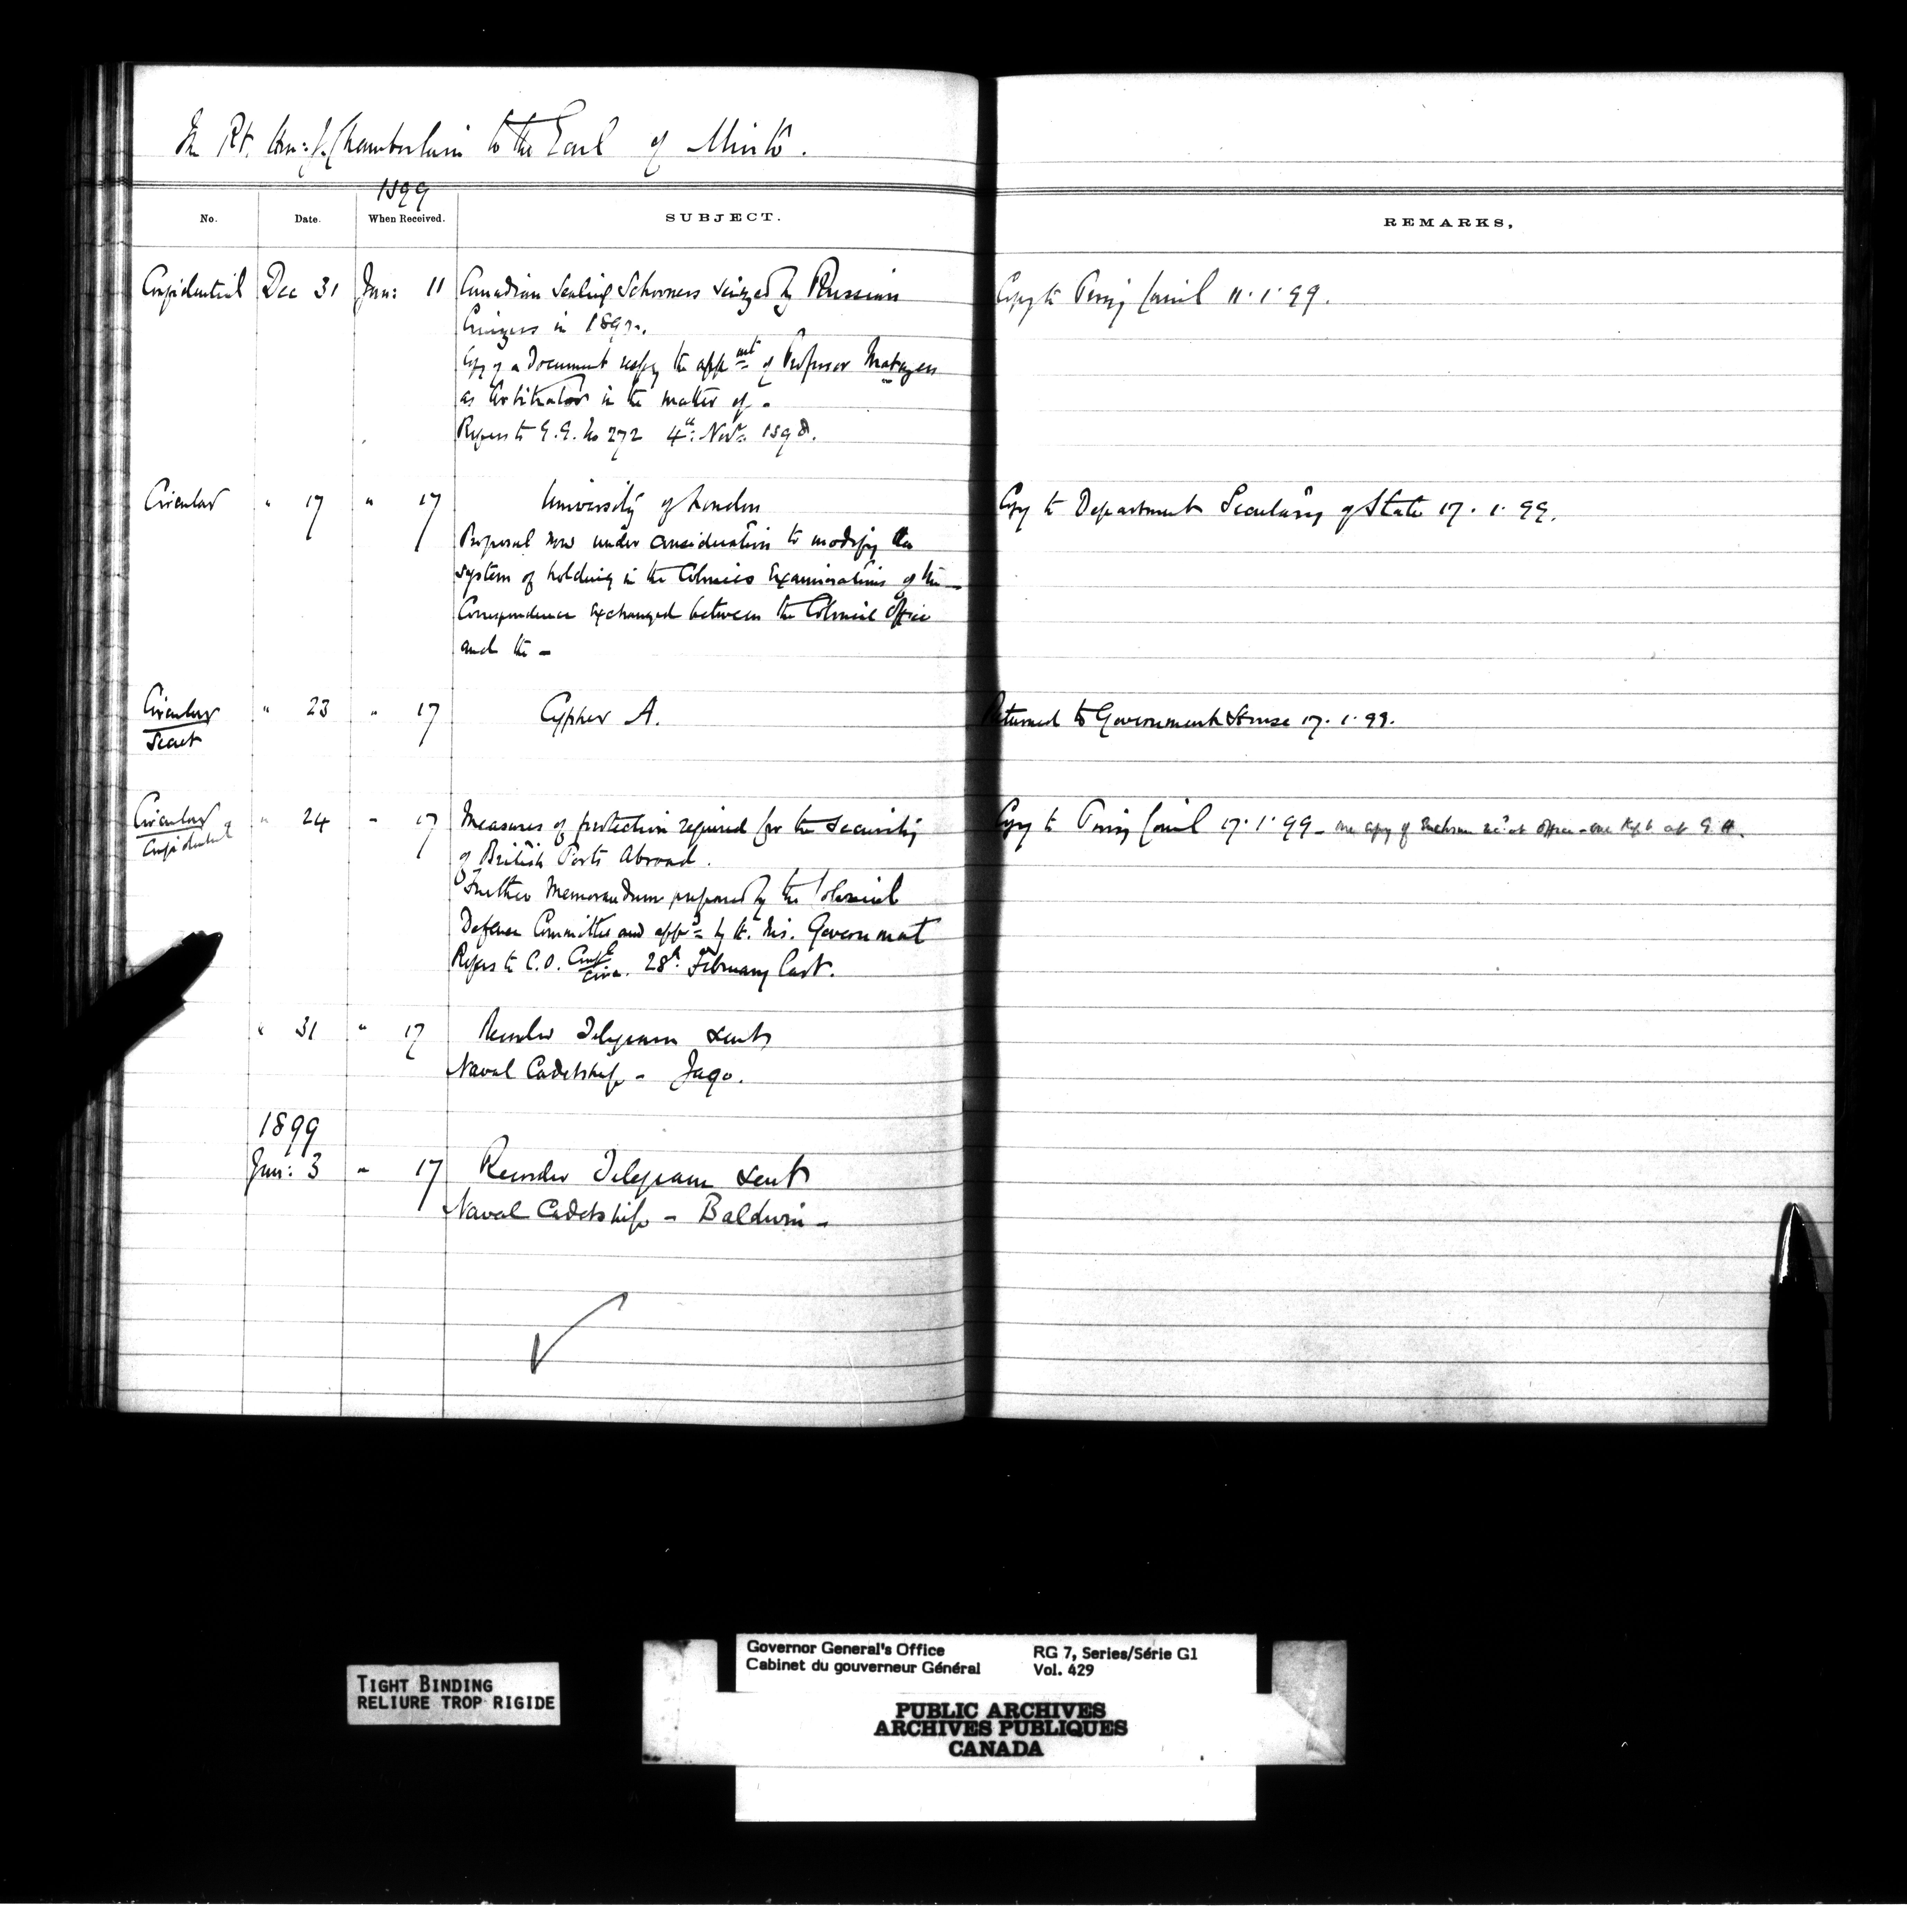 The Rt. Hon: J. Chamberlain to the Earl of Minto.
1899
No. Date. When Received. SUBJECT. REMARKS.
Confidential Dec 31 Jan: 11 Canadian Sealing Schooners seized by Russian Copy to Privy Council 11.1.99.
Cruizers in 1892.
Copy of a Document respg the appmt of Professor Matzen
as Arbitrator in the matter of -
Refers to G.G. No 272 4th Novr 1898.
Circular " 17 " 17 University of London Copy to Department Secretary of State 17.1.99.
Proposal now under consideration to modify the
system of holding in the Colonies Examinations of the -
Correspondence exchanged between the Colonial Office
and the -
Circular " 23 " 17 Cypher A. Returned to Government House 17.1.99.
Secret
Circular " 24 " 17 Measures of protection required for the Security Copy to Privy Council 17.1.99 - one copy of Enclosure at office - one kept at G.H.
Confidential
of British Ports Abroad.
Further Memorandum prepared by the Colonial
Defence Committee and appd by H. Ms. Government
Refers to C.O. Confl Circr. 28th February last.
" 31 " 17 Recorder Telegram sent
Naval Cadetship - Jago.
1899
Jan: 3 " 17 Recorder Telegram sent
Naval Cadetship - Baldwin -
TIGHT BINDING
RELIURE TROP RIGIDE
Governor General's Office RG 7, Series/Série G1
Cabinet du gouverneur Général Vol. 429
PUBLIC ARCHIVES
ARCHIVES PUBLIQUES
CANADA